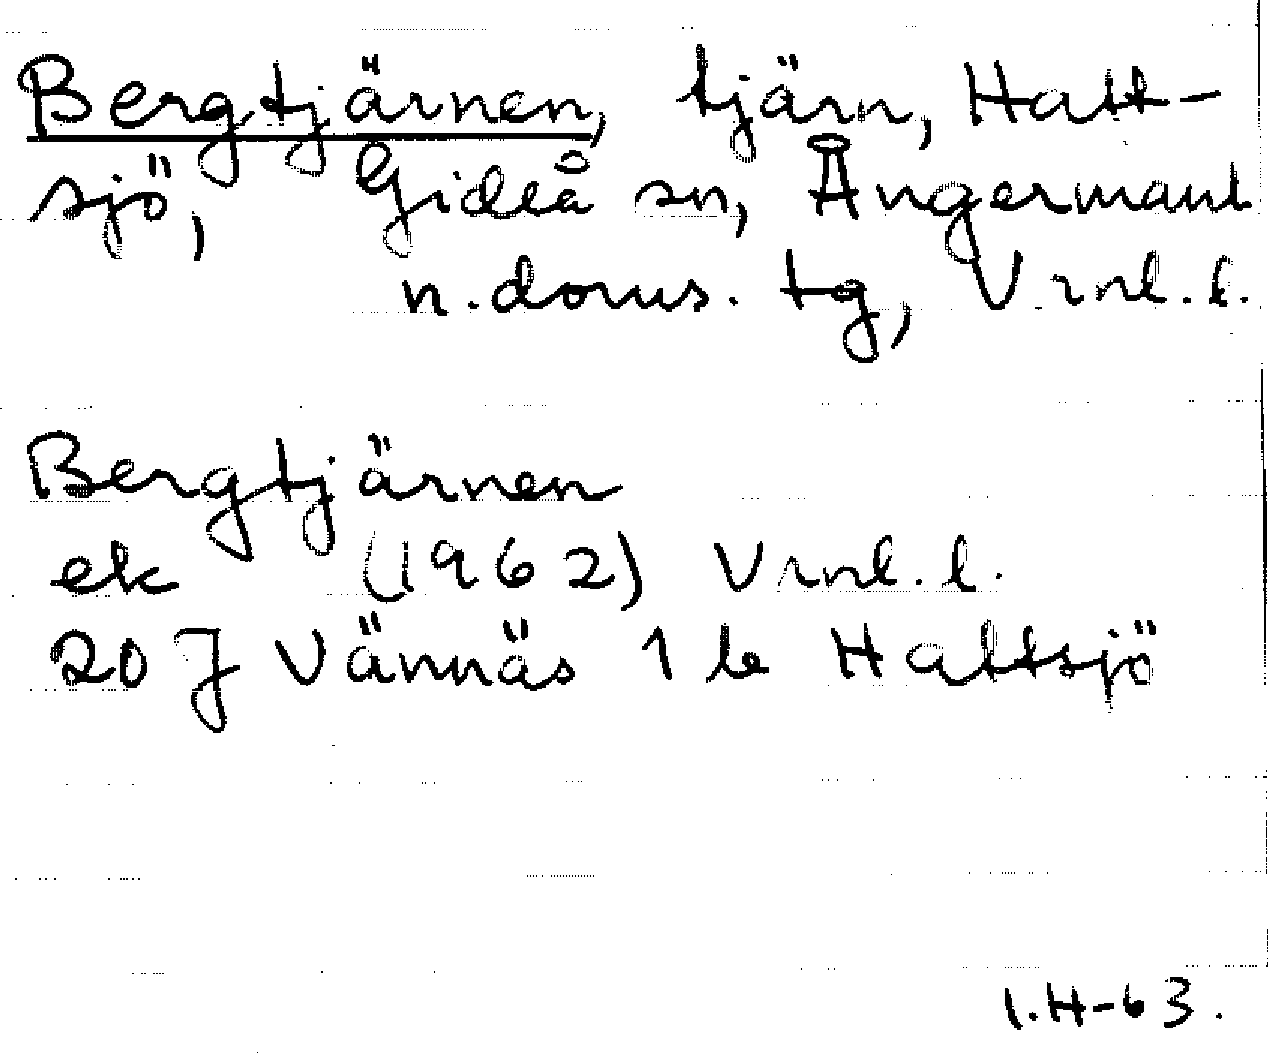 Bergtjärnen, tjärn, Hatt-
sjö, Gideå sn, Ångermanl
n. doms. tg, Vrnl. l.
Bergtjärnen
ek (1962) Vrnl. l.
20 J Vännäs 1 be Hattsjö
I.H-63.